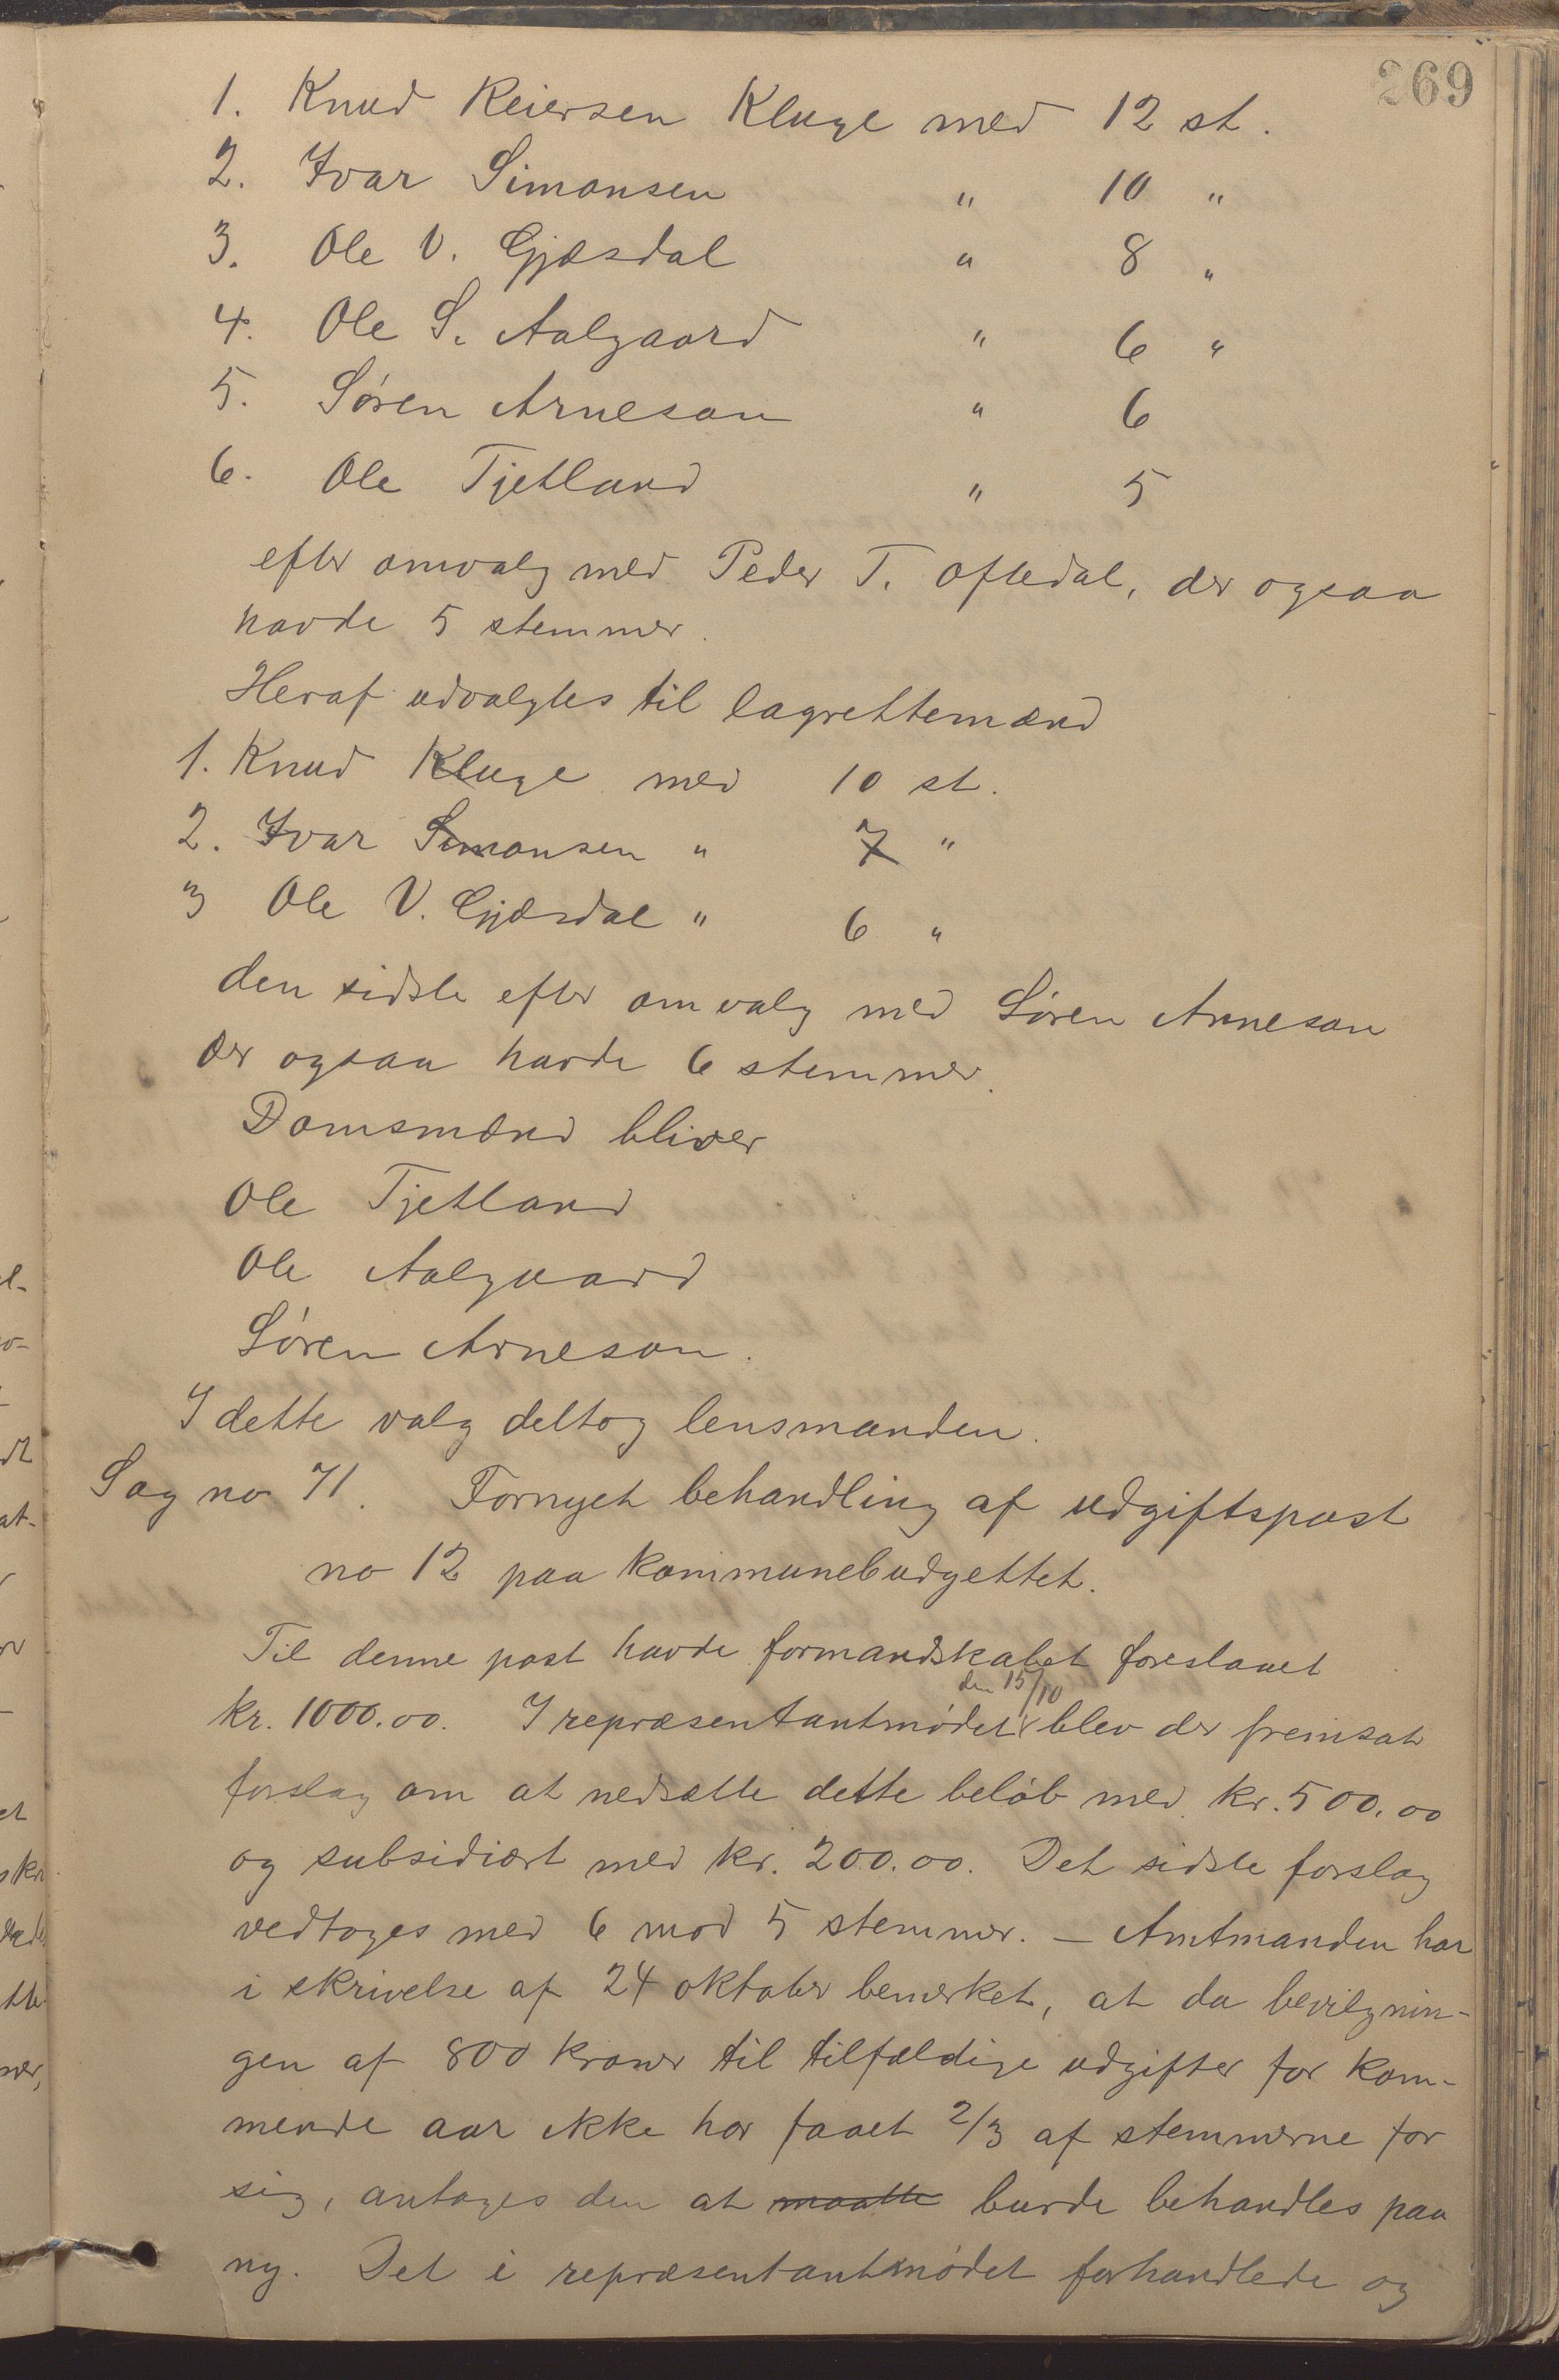 269
1. Knud Reiersen Kluge med 12 st.
2. Ivar Simonsen " 10 "
3. Ole V. Gjæsdal " 8 "
4. Ole S. Aalgaard " 6 "
5. Søren Arneson " 6
6. Ole Tjetland " 5
efter omvalg med Peder T. Oftedal, der ogsaa
havde 5 stemmer.
Heraf udvalgtes til lagrettemænd
1. Knud Kluge med 10 st.
2. Ivar Simonsen " 7 "
3 Ole V. Gjæsdal " 6 "
den sidste efter omvalg med Søren Arneson
der ogsaa havde 6 stemmer.
Domsmænd bliver
Ole Tjetland
Ole Aalgaard
Søren Arneson.
I dette valg deltog lensmanden.
Sag no 71. Fornyet behandling af udgiftspost
no 12 paa kommunebudgettet.
Til denne post havde formandskabet foreslaaet
den 15/10
kr. 1000.00. I repræsentantmødet blev der fremsat
forslag om at nedsætte dette beløb med kr. 500.00
og subsidiært med kr. 200.00. Det sidste forslag
vedtoges med 6 mod 5 stemmer. — Amtmanden har
i skrivelse af 24 oktober bemerket, at da bevilgnin-
gen af 800 kroner til tilfældige udgifter for kom-
mende aar ikke har faaet 2/3 af stemmerne for
sig, antages den at maatte burde behandles paa
ny. Det i repræsentantmødet forhandlede og